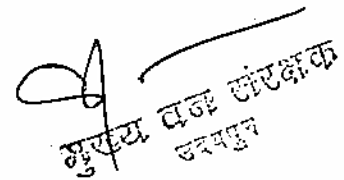 मुख्य वन संरक्षक
उदयपुर